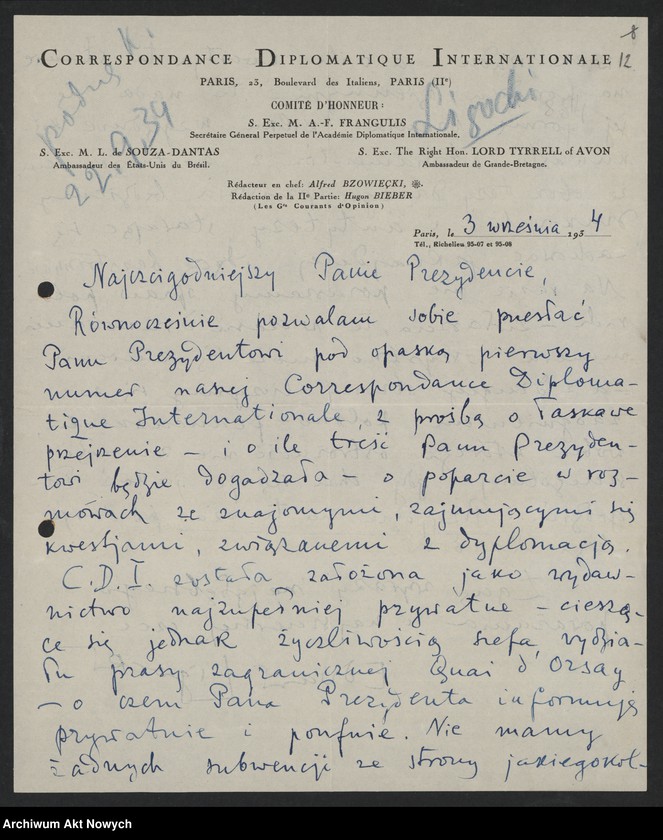 8
12
CORRESPONDANCE DIPLOMATIQUE INTERNATIONALE
PARIS, 23, Boulevard des Italiens, PARIS (IIe)
COMITÉ D'HONNEUR:
S. Exc. M. A.-F. FRANGULIS
Secrétaire Général Perpetuel de l'Académie Diplomatique Internationale.
S. Exc. M. L. de SOUZA-DANTAS
Ambassadeur des États-Unis du Brésil.
S. Exc. The Right Hon. LORD TYRRELL of AVON
Ambassadeur de Grande-Bretagne.
22.9.34
Ligocki
Rédacteur en chef: Alfred BZOWIĘCKI,
Rédaction de la IIe Partie: Hugon BIEBER
(Les Gds Courants d'Opinion)
Paris, le 3 września 1934
Tél., Richelieu 95-07 et 95-08
Najczcigodniejszy Panie Prezydencie,
Równocześnie pozwalam sobie przesłać
Panu Prezydentowi pod opaską pierwszy
numer naszej Correspondance Diploma-
tique Internationale, z prośbą o łaskawe
przejrzenie – i o ile treść Panu Prezyden-
towi będzie dogadzała – o poparcie w roz-
mówach ze znajomymi, zajmującymi się
kwestjami, związanemi z dyplomacją.
C.D.I. została założona jako wydaw-
nictwo najzupełniej prywatne – cieszą-
ce się jednak życzliwością szefa wydzia-
łu prasy zagranicznej Quai d'Orsay
– o czem Pana Prezydenta informuję
prywatnie i poufnie. Nie mamy
żadnych subwencji ze strony jakiegokol-
Archiwum Akt Nowych